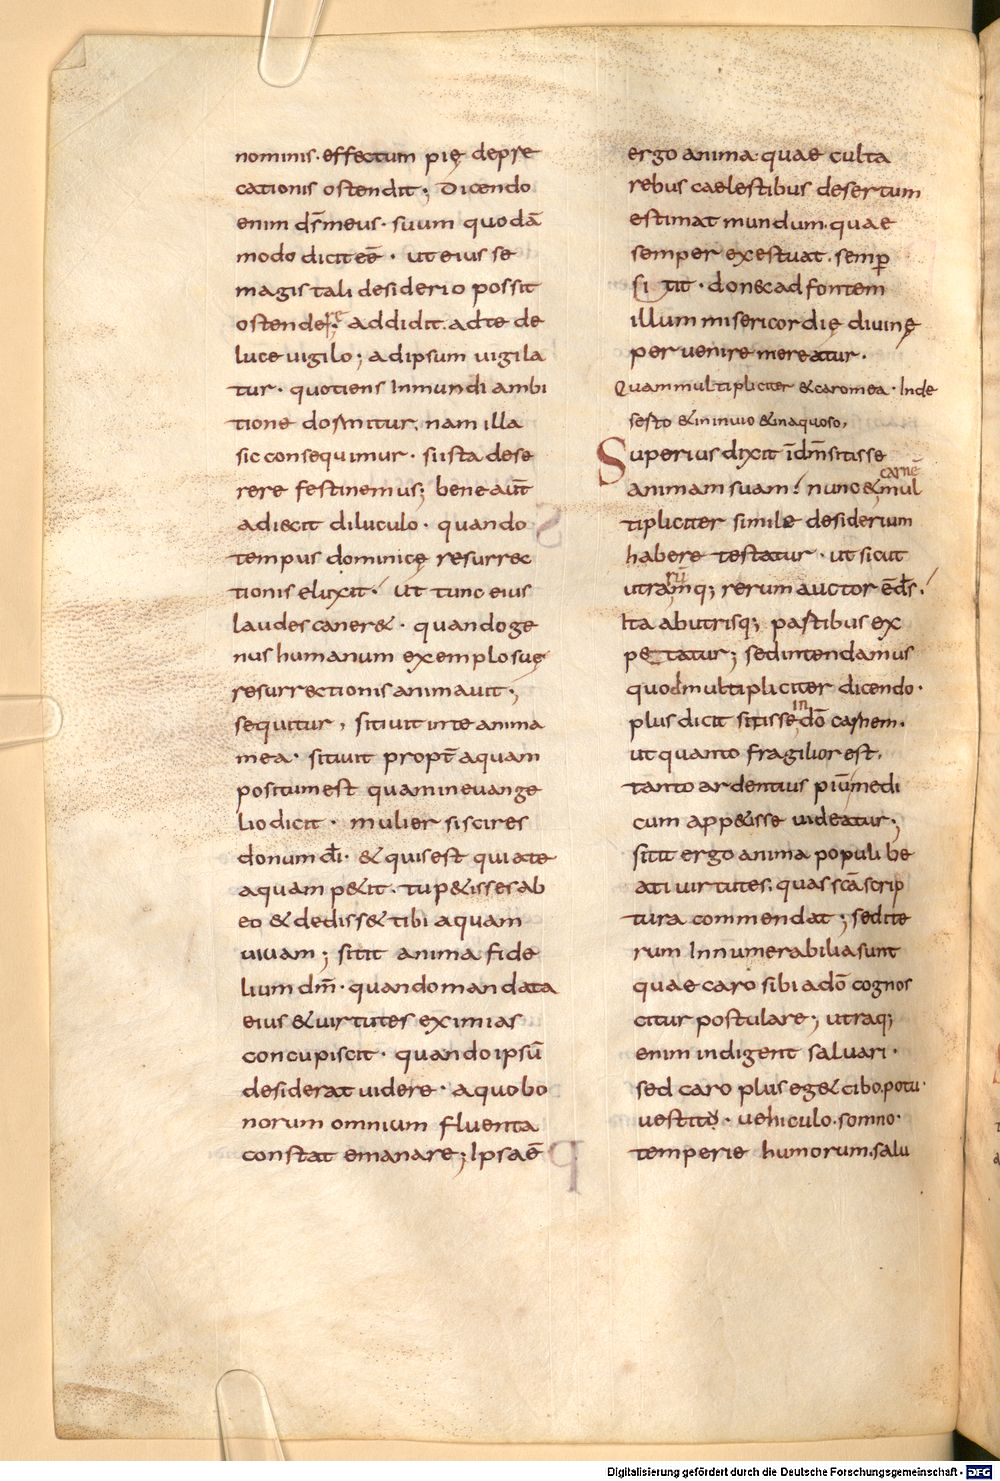 nominis· effectum pię depre
cationis ostendit; Dicendo
enim d̄s meus· suum quodā
modo dicit eē· ut eius se
magis tali desiderio possit
ostendere· addidit· ad te de
luce uigilo; ad ipsum uigila
tur· quotiens Inmundi ambi
tione dormitur, nam illa
sic consequimur· si ista dese
rere festinemus; bene aut̄
adiecit diluculo· quando
tempus dominicę resurrec
tionis eluxit· ut tunc eius
laudes caner&· quando ge
nus humanum exemplo suę
resurrectionis animauit;
sequitur, sitiuit in te anima
mea· sitiuit propt̄ aquam
positum est quam in euange
lio dicit· mulier si scires
donum dī· & quis est qui a te
aquam p&it· tu p&isses ab
eo & dediss& tibi aquam
uiuam; sitit anima fide
lium dm̄· quando mandata
eius & uirtutes eximias
concupiscit· quando ipsū
desiderat uidere· a quo bo
norum omnium fluenta
constat emanare; Ipsa ē
ergo anima· quae culta
rebus caelestibus desertum
estimat mundum· quae
semper exestuat· semp̄
sitit· don&c ad fontem
illum misericordię diuinę
peruenire mereatur·
Quam multipliciter & caro mea· In de
serto & in inuio & inaquoso,
Superius dixit īdm̄ sitisse
animam suam· nunc & carnē mul
tipliciter simile desiderium
habere testatur· ut sicut
utrarūmq; rerum auctor ē d̄s·
Ita ab utrisq; partibus ex
petatur; sed intendamus
quod multipliciter dicendo·
plus dicit sitisse in dō carnem·
ut quanto fragilior est·
tanto ardentius piū medi
cum app&isse uideatur;
sitit ergo anima populi be
ati uirtutes· quas scā scrip
tura commendat; sed ite
rum Innumerabilia sunt
quae caro sibi a dō cognos
citur postulare; utraq;
enim indigent saluari·
sed caro plus eg& cibo· potu·
uestitu· uehiculo· somno·
temperie humorum· salu
Digitalisierung gefördert durch die Deutsche Forschungsgemeinschaft - DFG